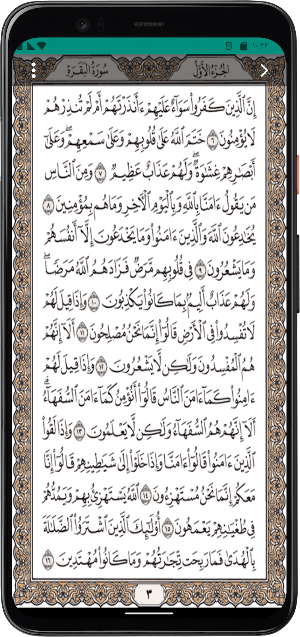 ١٠:٢٢
سُورَةُ البَقَرَةِ الجُزْءُ الأَوَّلُ
إِنَّ ٱلَّذِينَ كَفَرُوا۟ سَوَآءٌ عَلَيْهِمْ ءَأَنذَرْتَهُمْ أَمْ لَمْ تُنذِرْهُمْ
لَا يُؤْمِنُونَ ٦ خَتَمَ ٱللَّهُ عَلَىٰ قُلُوبِهِمْ وَعَلَىٰ سَمْعِهِمْ ۖ وَعَلَىٰٓ
أَبْصَٰرِهِمْ غِشَٰوَةٌ ۖ وَلَهُمْ عَذَابٌ عَظِيمٌ ٧ وَمِنَ ٱلنَّاسِ
مَن يَقُولُ ءَامَنَّا بِٱللَّهِ وَبِٱلْيَوْمِ ٱلْءَاخِرِ وَمَا هُم بِمُؤْمِنِينَ ٨
يُخَٰدِعُونَ ٱللَّهَ وَٱلَّذِينَ ءَامَنُوا۟ وَمَا يَخْدَعُونَ إِلَّآ أَنفُسَهُمْ
وَمَا يَشْعُرُونَ ٩ فِى قُلُوبِهِم مَّرَضٌ فَزَادَهُمُ ٱللَّهُ مَرَضًا ۖ
وَلَهُمْ عَذَابٌ أَلِيمٌۢ بِمَا كَانُوا۟ يَكْذِبُونَ ١٠ وَإِذَا قِيلَ لَهُمْ
لَا تُفْسِدُوا۟ فِى ٱلْأَرْضِ قَالُوٓا۟ إِنَّمَا نَحْنُ مُصْلِحُونَ ١١ أَلَآ إِنَّهُمْ
هُمُ ٱلْمُفْسِدُونَ وَلَٰكِن لَّا يَشْعُرُونَ ١٢ وَإِذَا قِيلَ لَهُمْ
ءَامِنُوا۟ كَمَآ ءَامَنَ ٱلنَّاسُ قَالُوٓا۟ أَنُؤْمِنُ كَمَآ ءَامَنَ ٱلسُّفَهَآءُ ۗ
أَلَآ إِنَّهُمْ هُمُ ٱلسُّفَهَآءُ وَلَٰكِن لَّا يَعْلَمُونَ ١٣ وَإِذَا لَقُوا۟
ٱلَّذِينَ ءَامَنُوا۟ قَالُوٓا۟ ءَامَنَّا وَإِذَا خَلَوْا۟ إِلَىٰ شَيَٰطِينِهِمْ قَالُوٓا۟ إِنَّا
مَعَكُمْ إِنَّمَا نَحْنُ مُسْتَهْزِءُونَ ١٤ ٱللَّهُ يَسْتَهْزِئُ بِهِمْ وَيَمُدُّهُمْ
فِى طُغْيَٰنِهِمْ يَعْمَهُونَ ١٥ أُو۟لَٰٓئِكَ ٱلَّذِينَ ٱشْتَرَوُا۟ ٱلضَّلَٰلَةَ
بِٱلْهُدَىٰ فَمَا رَبِحَت تِّجَٰرَتُهُمْ وَمَا كَانُوا۟ مُهْتَدِينَ ١٦
٣